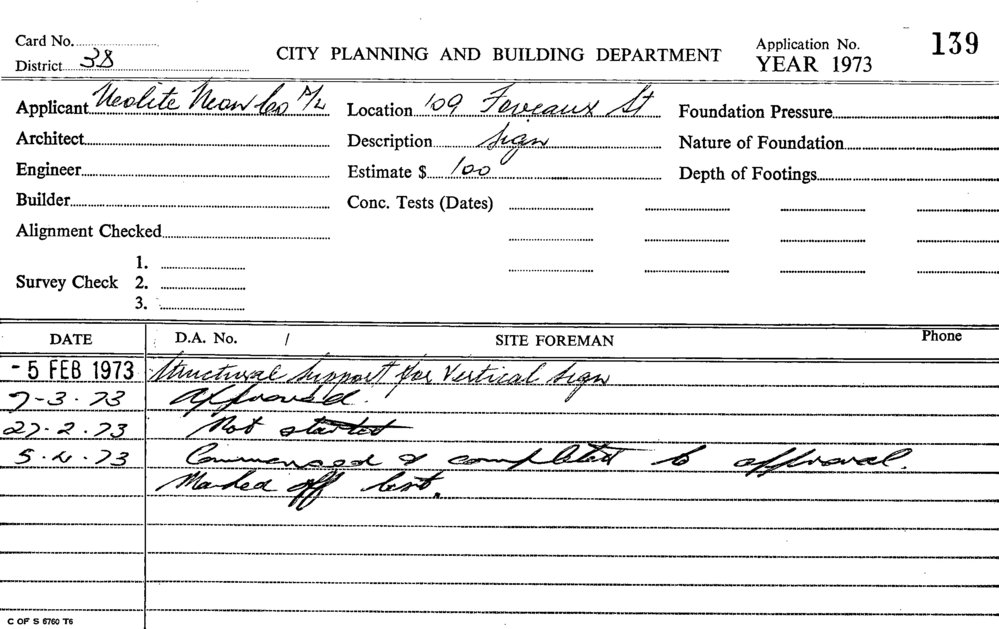 Card No.
District 38
CITY PLANNING AND BUILDING DEPARTMENT
Application No. 139
YEAR 1973
Applicant Neolite Neon Co P/L
Location 109 Foveaux St
Foundation Pressure
Architect
Description Sign
Nature of Foundation
Engineer
Estimate $ 100
Depth of Footings
Builder
Conc. Tests (Dates)
Alignment Checked
Survey Check 1.
2.
3.
DATE D.A. No. / SITE FOREMAN Phone
- 5 FEB 1973 Structural Support for Vertical Sign
7-3.73 Approved.
27.2.73 Not started
5.4.73 Commenced & completed to approval.
Marked off list.
C OF S 6760 T6